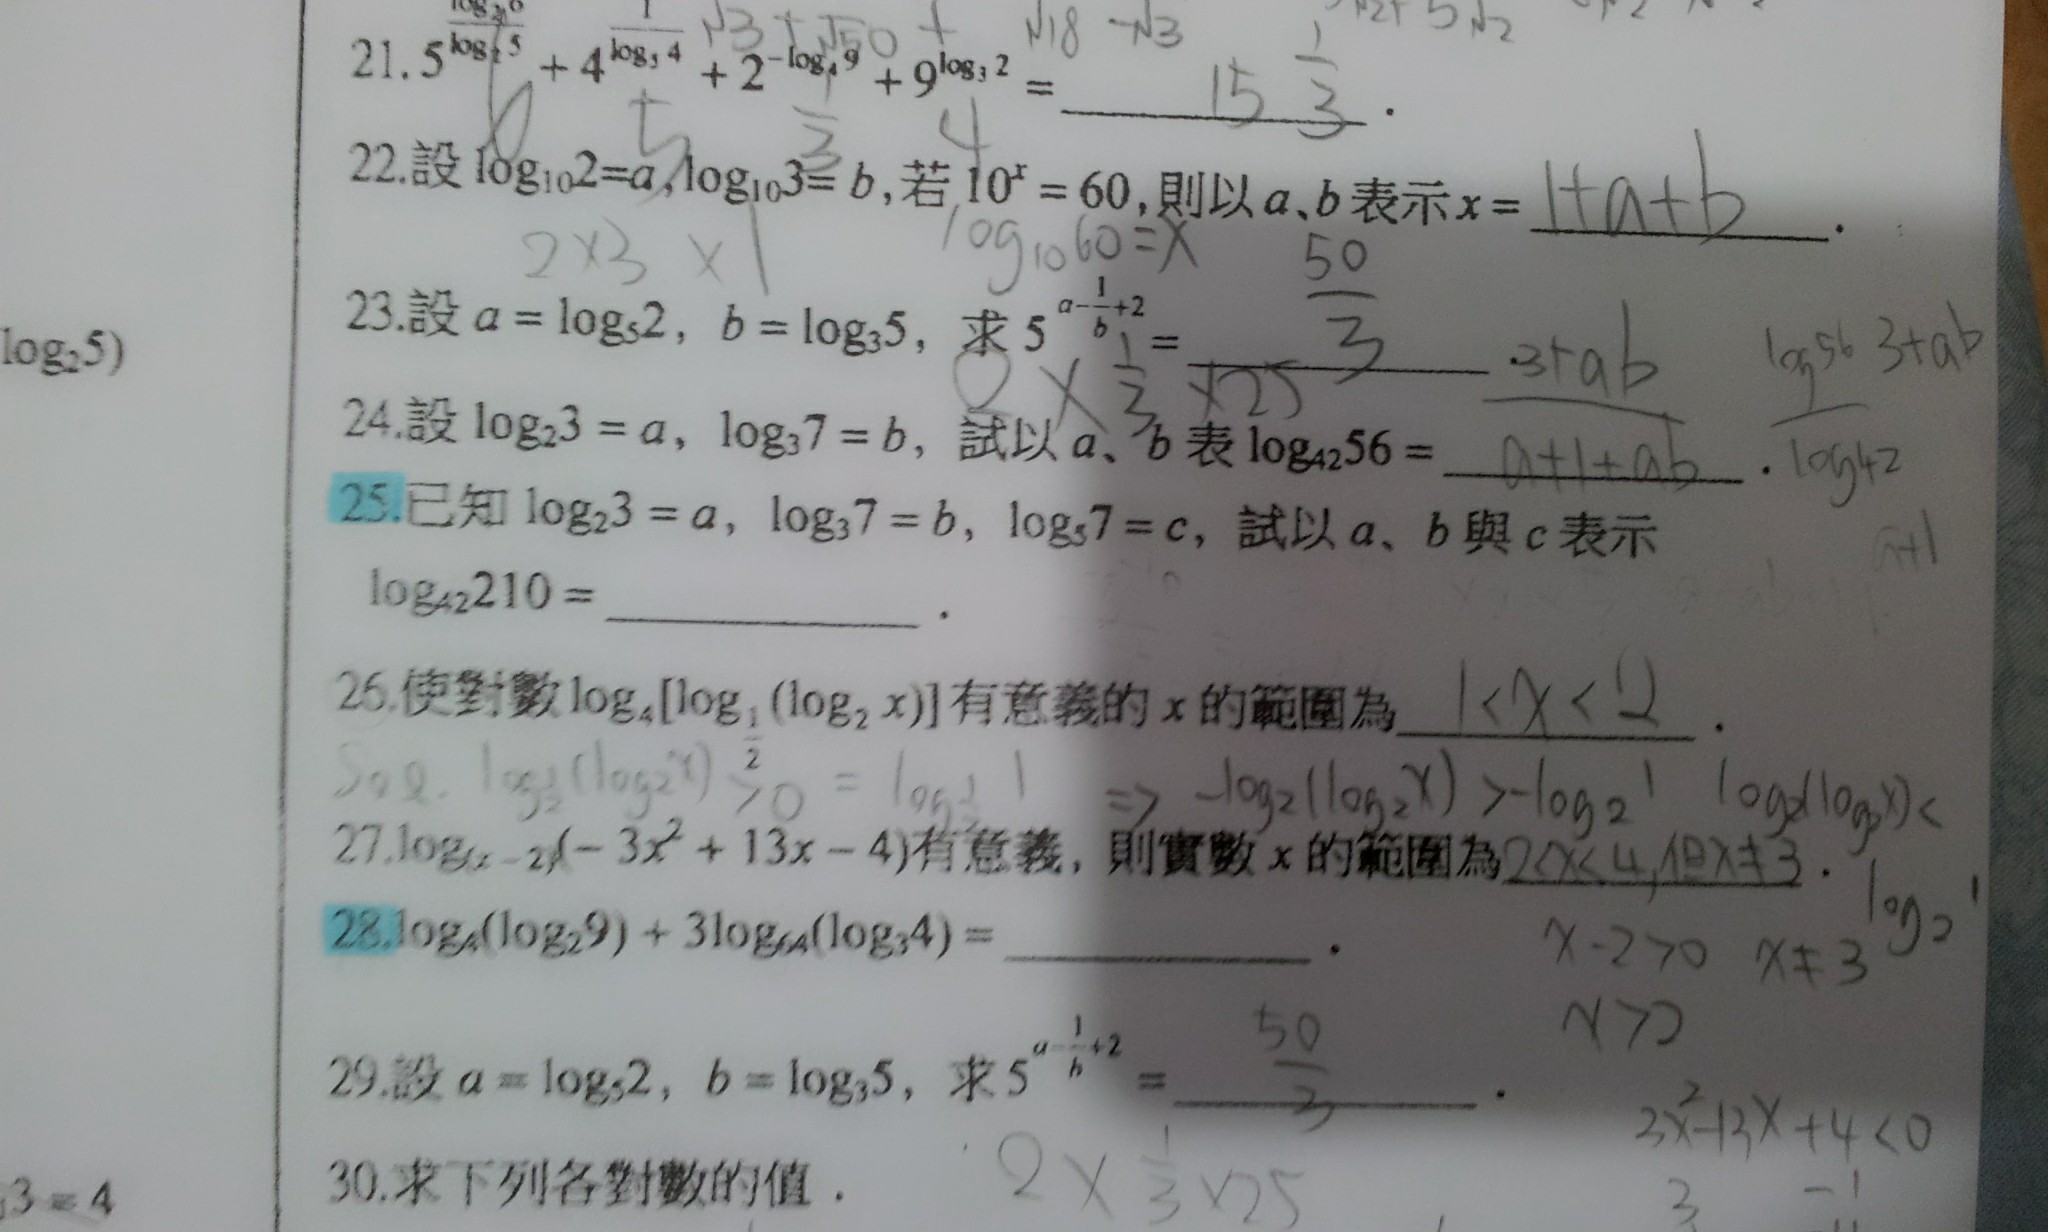 21. 5^(log₂6/log₂5) + 4^(1/log₅4) + 2^(-log₄9) + 9^(log₃2) = 15 1/3 .
6 5 1/3 4
22.設 log₁₀2=a, log₁₀3= b, 若 10ˣ = 60, 則以 a、b 表示 x = 1+a+b .
2×3 ×1 log₁₀60=x
23.設 a = log₅2, b = log₃5, 求 5^(a-1/b+2) = 50/3 .
× 1/3 ×25
log₂5)
24.設 log₂3 = a, log₃7 = b, 試以 a、b 表 log₄₂56 = (3+ab)/(a+1+ab) .
log56 3+ab
log42
25.已知 log₂3 = a, log₃7 = b, log₅7 = c, 試以 a、b 與 c 表示
a+1
log₄₂210 = .
26.使對數 log₄[log_(1/2) (log₂ x)] 有意義的 x 的範圍為 1<x<2 .
log_(1/2)(log₂x) >0 = log_(1/2) 1 => -log₂(log₂x) >-log₂1 log₂(log₂x)<
log₂1
27.log₍ₓ₋₂₎(− 3x² + 13x − 4)有意義, 則實數 x 的範圍為 2<x<4,但x≠3 .
28.log₄(log₂9) + 3log₆₄(log₃4) = .
x-2>0 x≠3
x>2
29.設 a = log₅2, b = log₃5, 求 5^(a-1/b+2) = 50/3 .
3x²-13x+4<0
2 × 1/3 ×25
3 -1
30.求下列各對數的值.
3 = 4